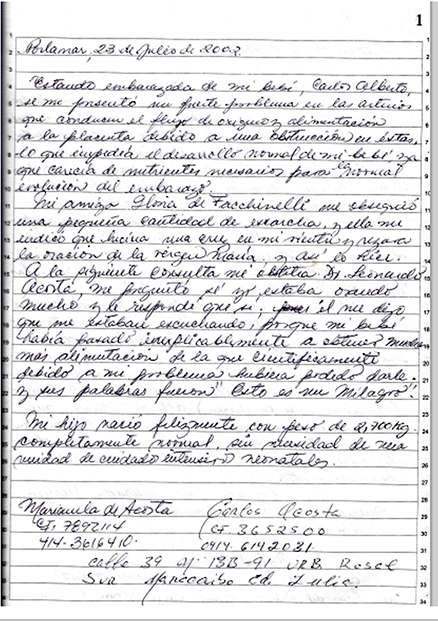 1
Porlamar, 23 de Julio de 2002.
Estando embarazada de mi bebé, Carlos Alberto,
se me presentó un fuerte problema en las arterias
que conducen el flujo de oxigeno y alimentación
a la placenta debido a una obstrucción en éstas.
lo que impedía el desarrollo normal de mi bebé ya
que carecía de nutrientes necesarios para "normal
evolución del embarazo".
Mi amiga Gloria de Facchinelli me obsequió
una pequeña cantidad de escarcha, y ella me
indico que hiciera una cruz en mi vientre y rezara
la oración de la virgen María, y así lo hice.
A la siguiente consulta mi obstetra Dr. Leonardo
Acosta, me preguntó si yo estaba orando
mucho y le respondí que sí, él me dijo
que me estaban escuchando, porque mi bebé
había pasado inexplicablemente a obtener mucho
más alimentación de la que cientificamente
debido a mi problema hubiera podido darle.
y sus palabras fueron "Esto es un Milagro".
Mi hijo nació felizmente con peso de 2,700 Kg.
completamente normal, sin necesidad de una
unidad de cuidado intensivo neonatales.
de Acosta Carlos Acosta
CI. 7892114 CI. 3652500
414-3616410. 0414-6142031.
calle 39 Nº 13B-91 URB. Rosal
Sur Maracaibo Ed. Zulia.